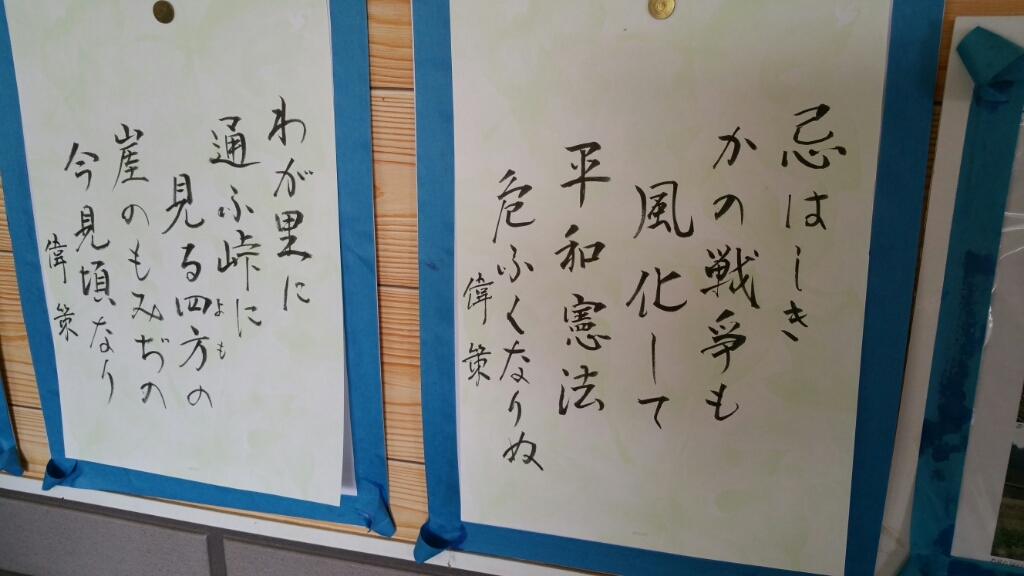 忌はしき
かの戦争も
風化して
平和憲法
危ふくなりぬ
偉策
わが里に
通ふ峠に
見る四方の
よも
崖のもみぢの
今見頃なり
偉策